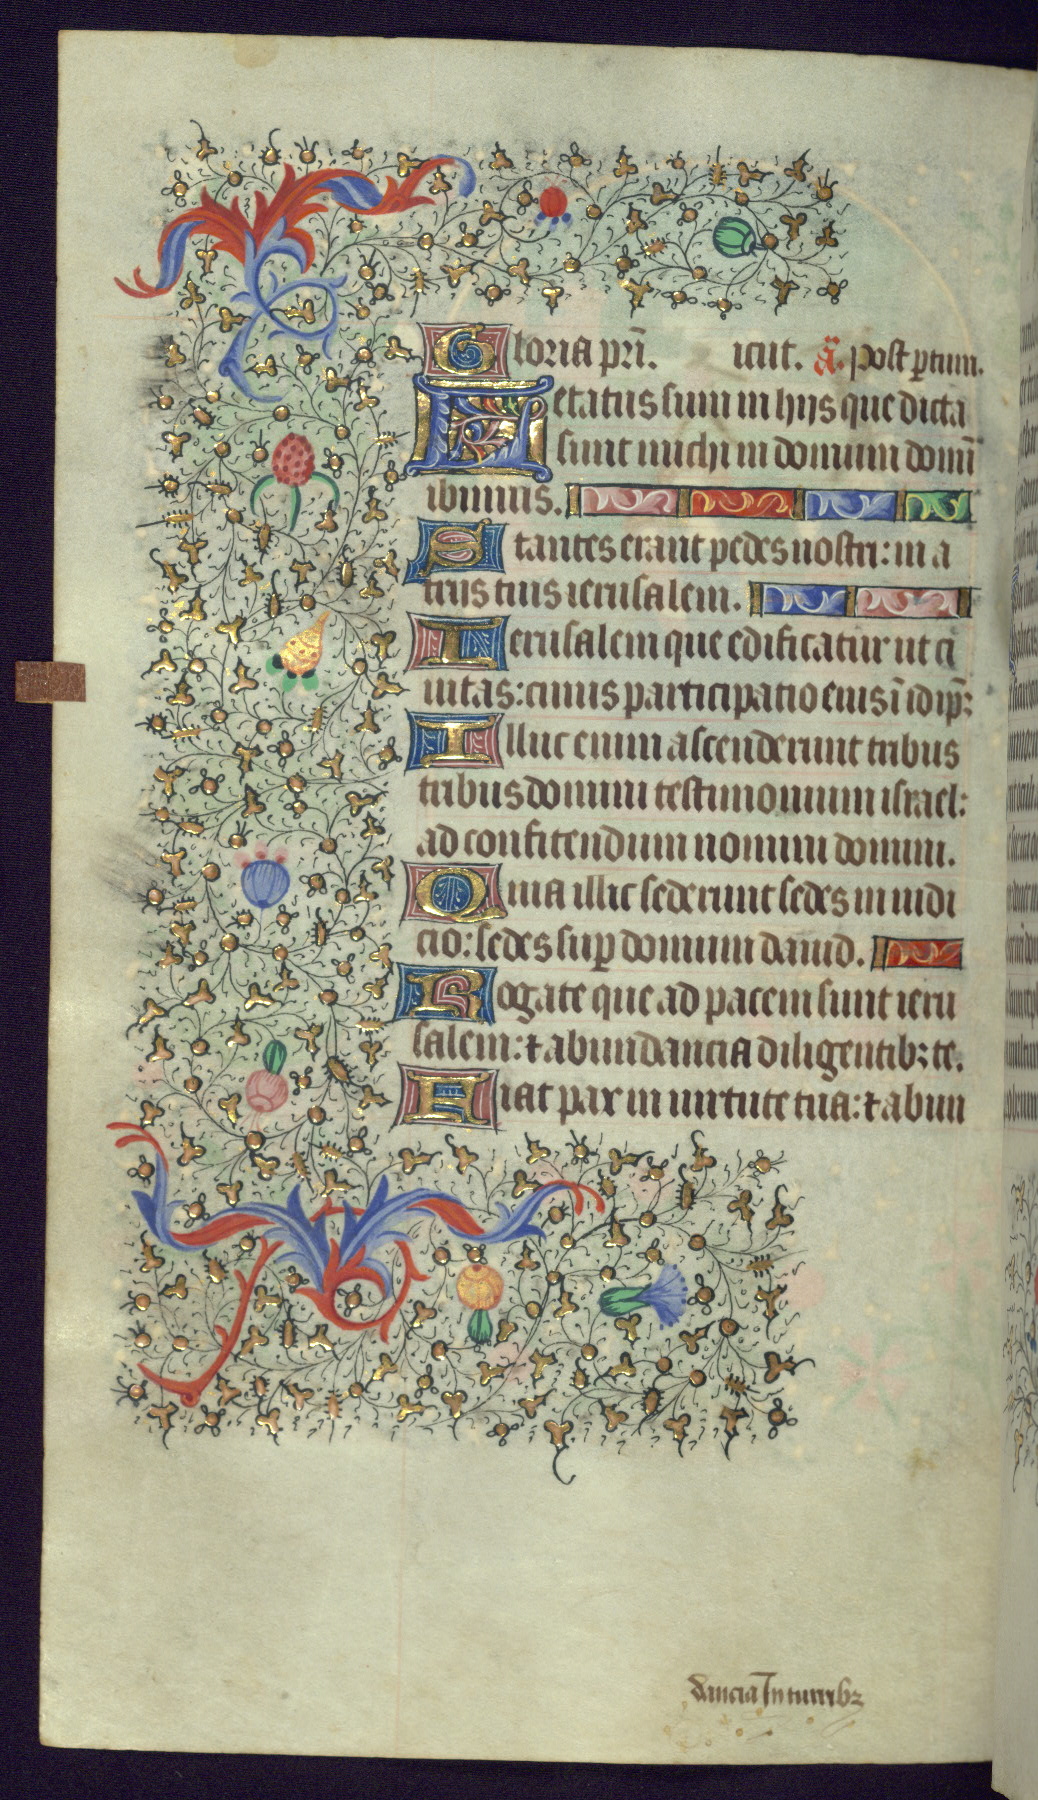 Gloria pri. icut. a. post ptum.
Letatus sum in hijs que dicta
sunt michi in domum domi
ibimus.
Stantes erant pedes nostri: in a
trijs tuis ierusalem.
Ierusalem que edificatur ut ci
uitas: cuius participatio eius ī idip:
Illuc enim ascenderunt tribus
tribus domini testimonium israel:
ad confitendum nomini domini.
Quia illic sederunt sedes in iudi
cio: sedes sup domum dauid.
Rogate que ad pacem sunt ieru
salem: ⁊ abundancia diligentibꝫ te.
Fiat pax in uirtute tua: ⁊ abun
dancia In turribꝫ